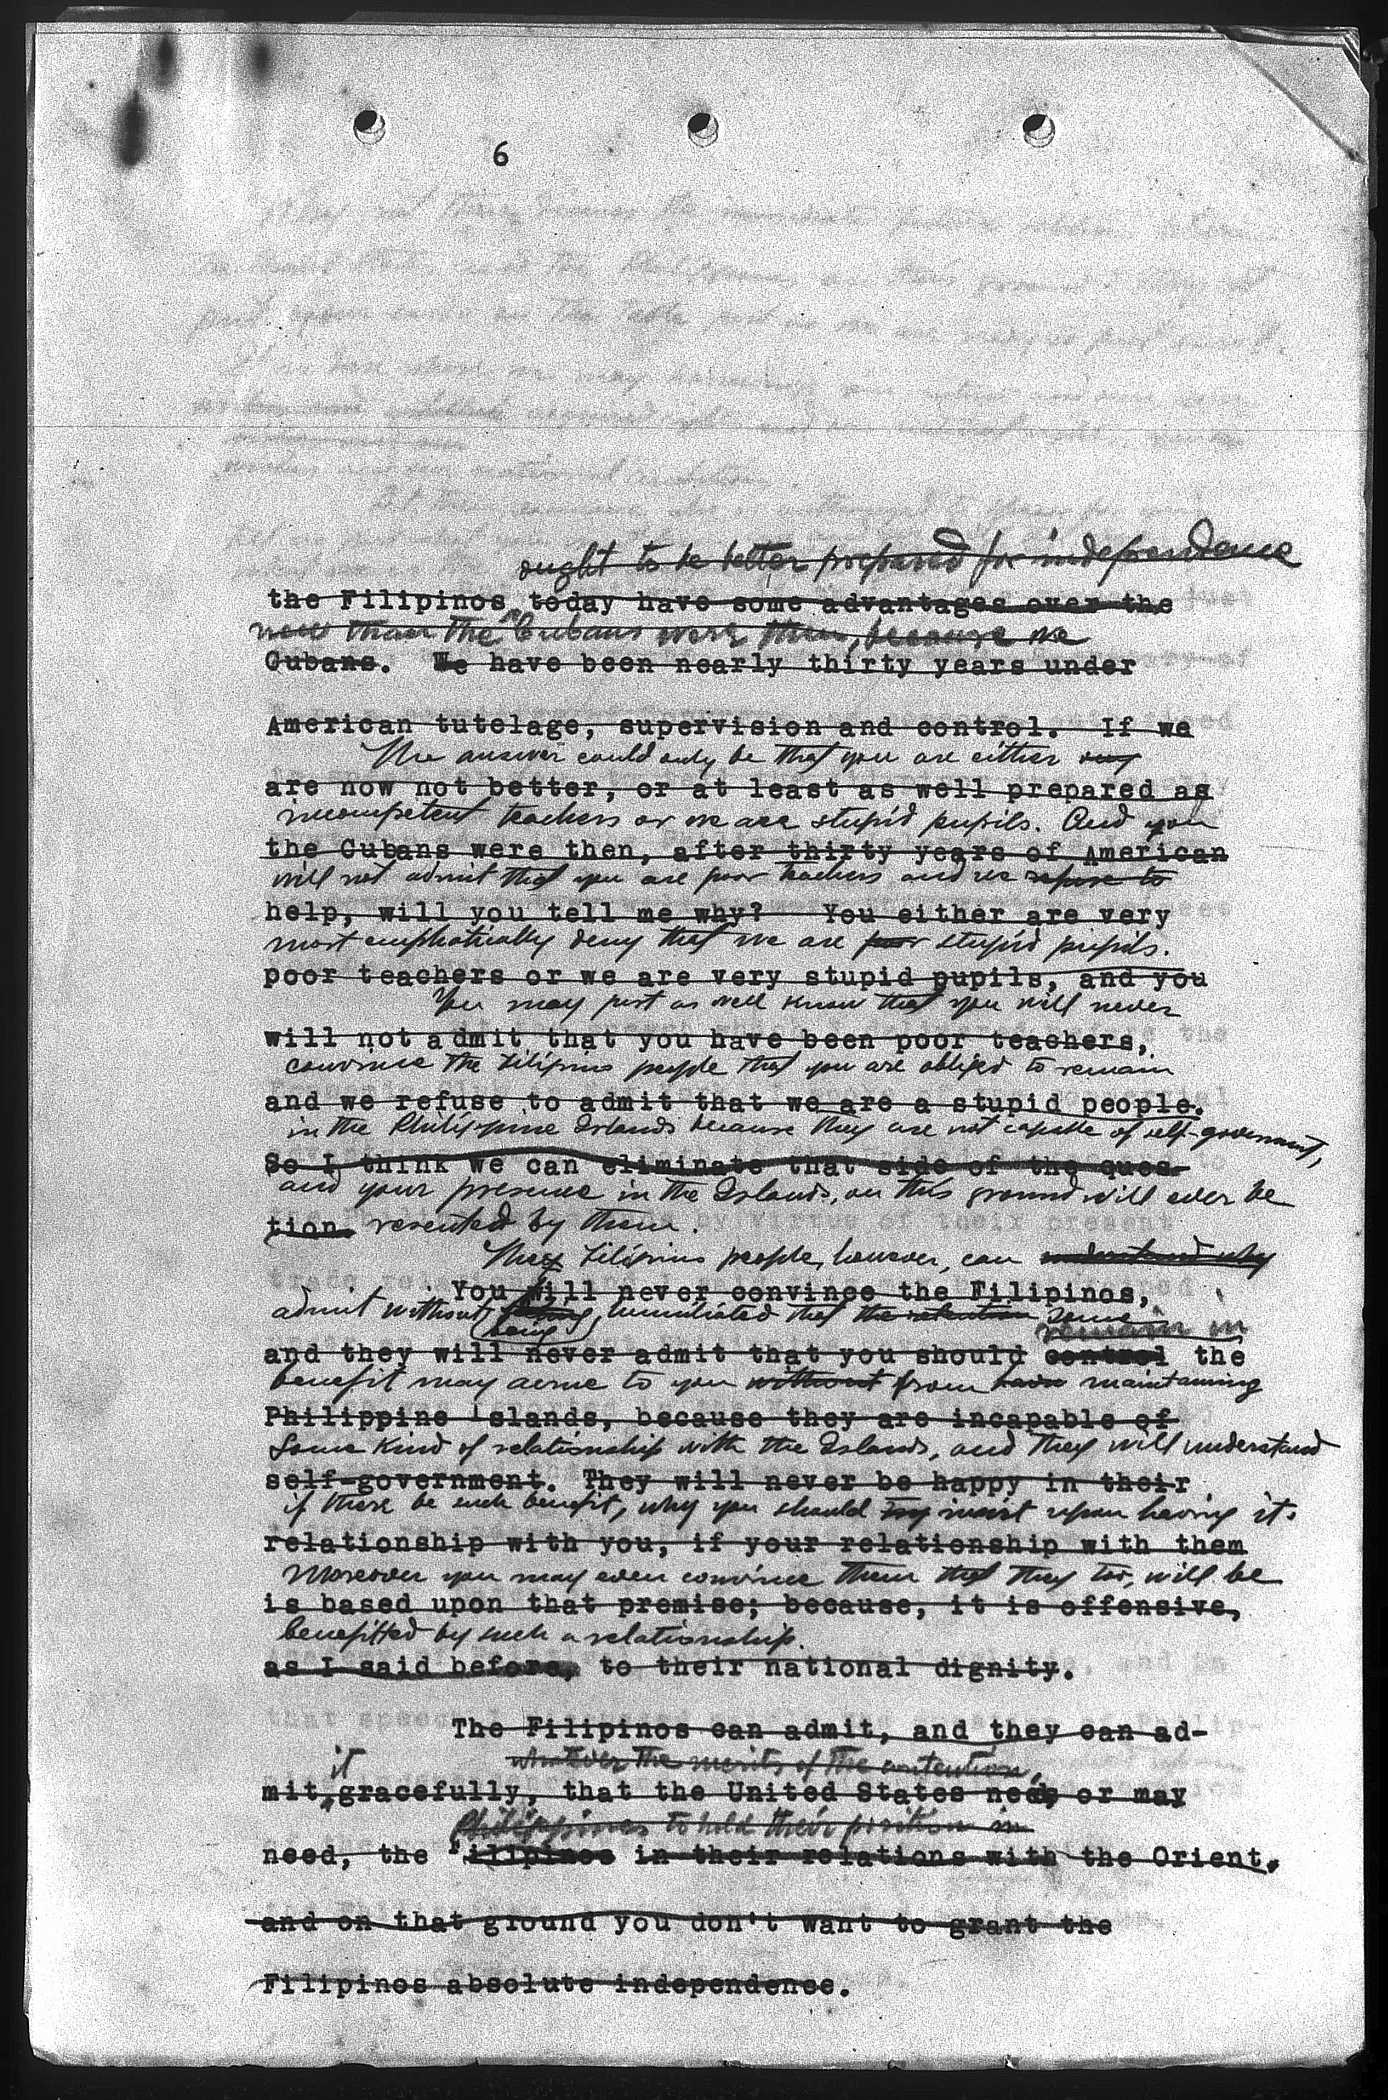 6
ought to be better prepared for independence
the Filipinos today have some advantages over the
now than the Cubans were then, because we
Cubans. We have been nearly thirty years under
American tutelage, supervision and control. If we
The answer could only be that you are either
are now not better, or at least as well prepared as
incompetent teachers or we are stupid pupils. And you
the Cubans were then, after thirty years of American
will not admit that you are poor teachers and we refuse to
help, will you tell me why? You either are very
most emphatically deny that we are poor stupid pupils.
poor teachers or we are very stupid pupils, and you
You may just as well know that you will never
will not admit that you have been poor teachers,
convince the Filipino people that you are obliged to remain
and we refuse to admit that we are a stupid people.
in the Philippine Islands because they are not capable of self-government,
So I think we can eliminate that side of the ques-
and your presence in the Islands, on this ground will ever be
tion. resented by them.
The Filipino people, however, can understand why
You will never convince the Filipinos,
admit without being humiliated that the retention some
being remain in
and they will never admit that you should control the
benefit may acrue to you without from have maintaining
Philippine Islands, because they are incapable of
some kind of relationship with the Islands, and they will understand
self-government. They will never be happy in their
if there be such benefit, why you should try insist upon having it.
relationship with you, if your relationship with them
Moreover you may even convince them that they too, will be
is based upon that premise; because, it is offensive,
benefitted by such a relationship.
as I said before, to their national dignity.
The Filipinos can admit, and they can ad-
it whatever the merits of the contention,
mit gracefully, that the United States need, or may
Philippines to hold their position in
need, the Filipinos in their relations with the Orient,
and on that ground you don't want to grant the
Filipinos absolute independence.